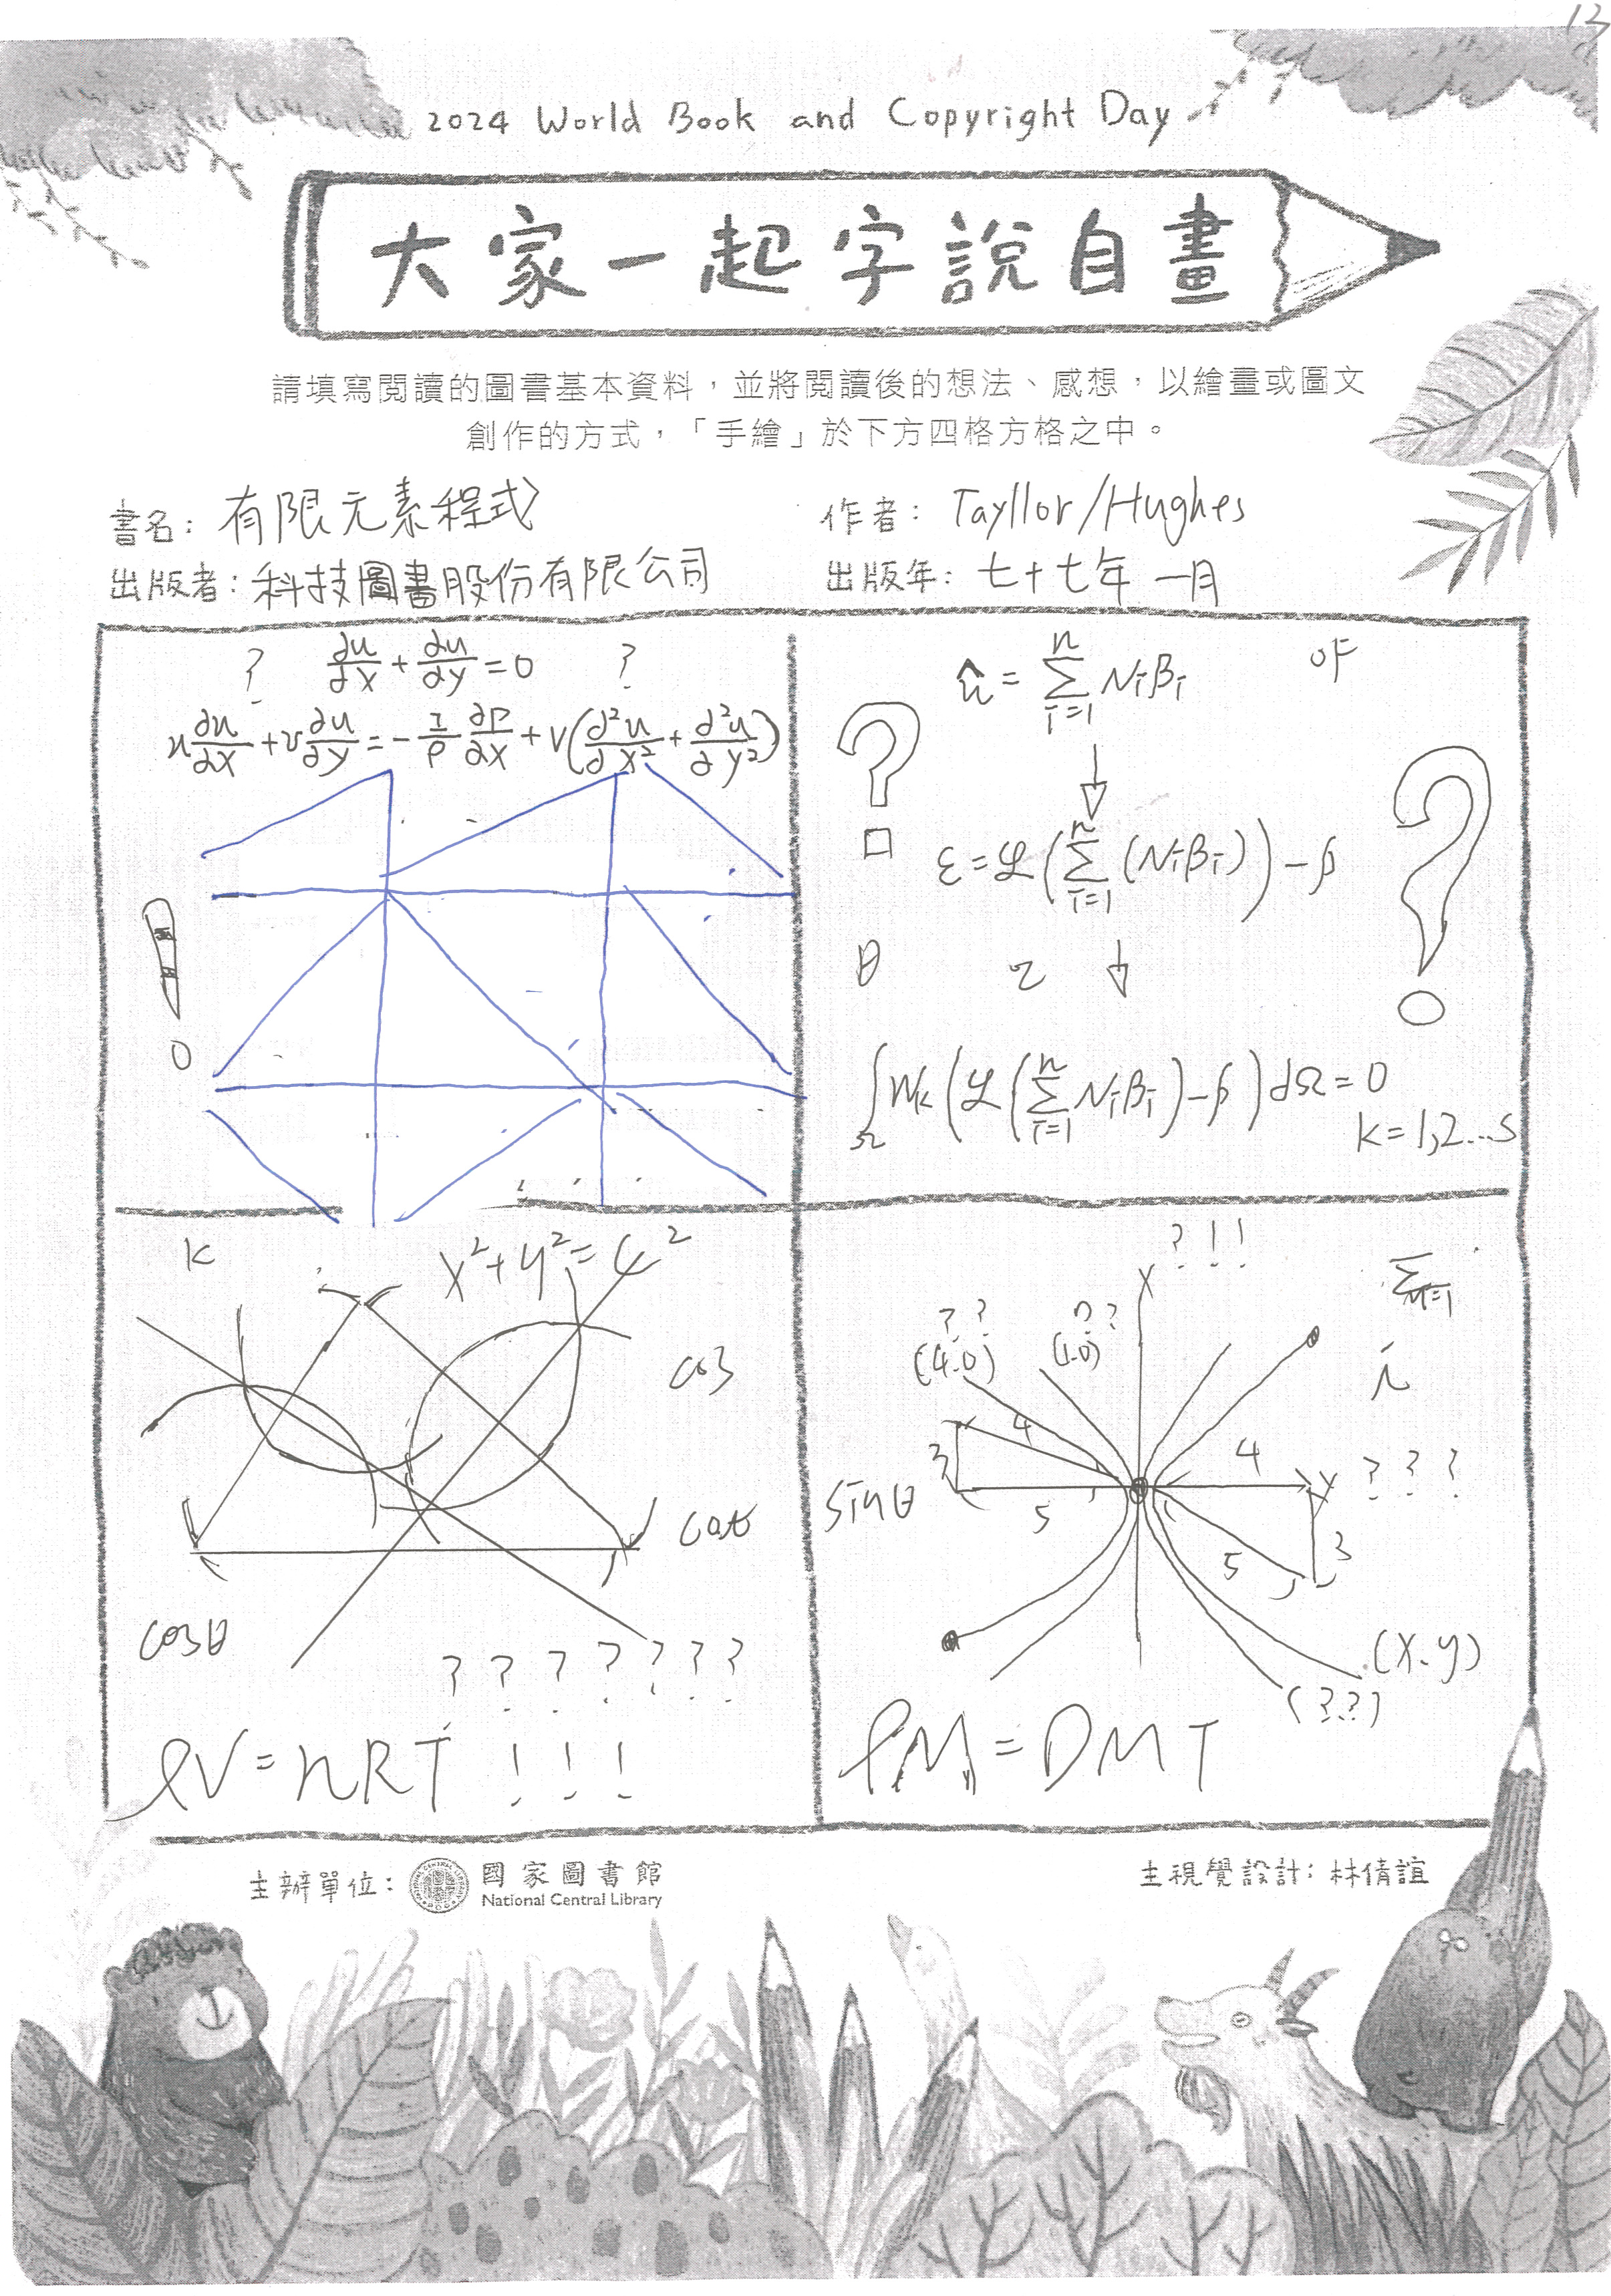 13
2024 World Book and Copyright Day
大家一起字說自畫
請填寫閱讀的圖書基本資料，並將閱讀後的想法、感想，以繪畫或圖文
創作的方式，「手繪」於下方四格方格之中。
書名：有限元素程式
作者：Tayllor/Hughes
出版者：科技圖書股份有限公司
出版年：七十七年一月
? ∂u/∂x + ∂u/∂y = 0 ?
u ∂u/∂x + v ∂u/∂y = - 1/ρ ∂P/∂x + V(∂²u/∂x² + ∂²u/∂y²)
û = Σ i=1 n NiBi
ε = ℒ(Σ i=1 n (NiBi)) - p
θ
∫Ω Wk(ℒ(Σ i=1 n NiBi) - p) dΩ = 0
k = 1,2...s
K
x² + y² = 4²
cos
cosθ
? ? ? ? ? ? ?
PV = nRT ! ! !
? ! !
x
Σ n=1
? ?
(4.0)
? ?
(1.0)
i
4
3
4
Y ? ? ?
sinθ
5
5
3
(x.y)
(??)
PM = DMT
主辦單位：國家圖書館
National Central Library
主視覺設計：林倩誼